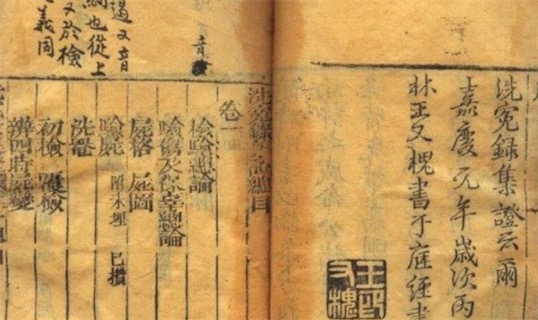 洗冤錄集證云爾
嘉慶元年歲次丙
林王又槐書于庭
王印
又槐
音
又音
也從上
又於檢
義同
洗冤錄集證總目
卷一
檢驗總論
驗傷及保辜總論
屍格 屍圖
驗屍 附未埋 已攢
洗罨
初檢 覆檢
辨四時屍變